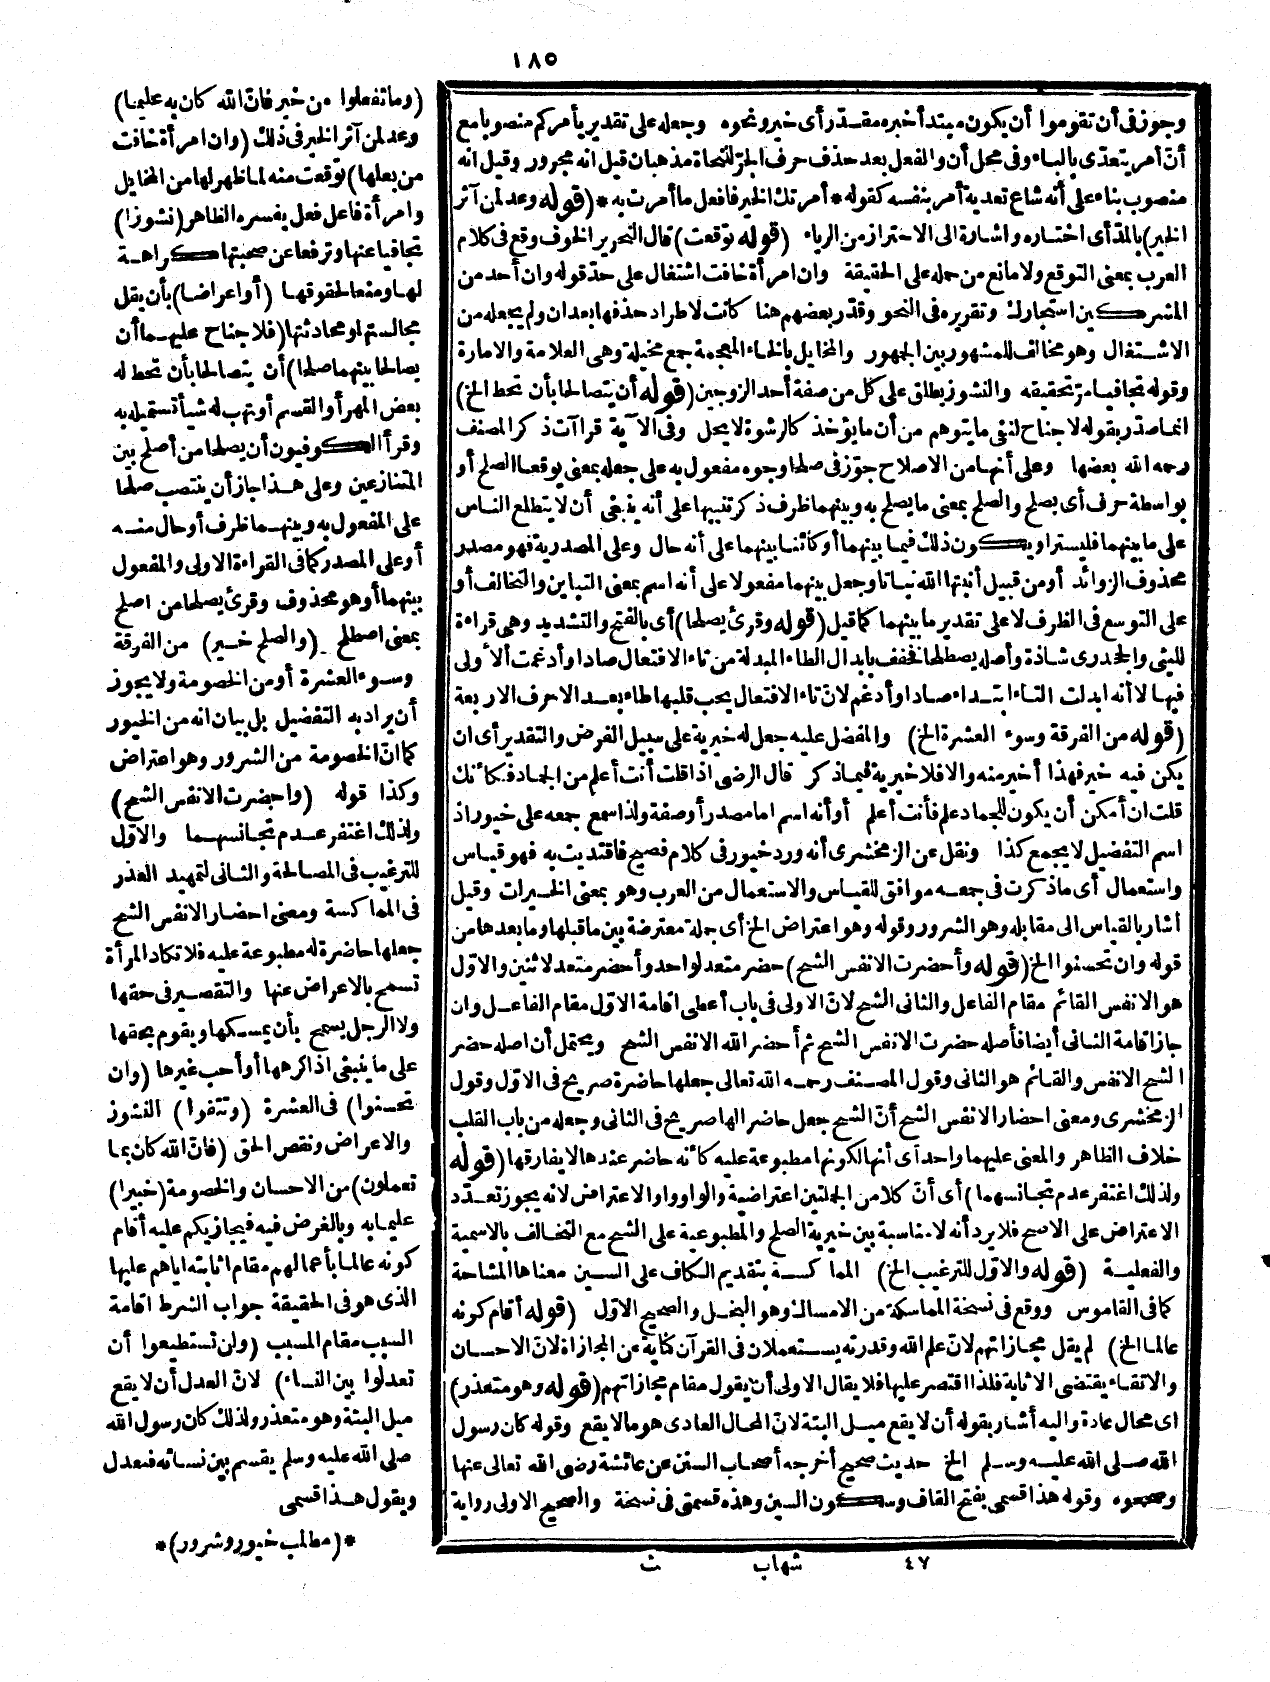 ١٨٥
وجوز في أن تقوموا أن يكون مبتدأ خبره مقدر أي خير ونحوه وجعله على تقدير يأمركم منصوبا مع
أن أمر يتعدى بالباء وفي محل أن والفعل بعد حذف حرف الجر للنحاة مذهبان قيل انه مجرور وقيل انه
منصوب بناء على أنه شاع تعدية أمر بنفسه كقوله * أمرتك الخير فافعل ما أمرت به * (قوله وعد لمن آثر
الخير) بالمد أي اختاره واشارة الى الاحتراز من الرياء (قوله توقعت) قال النحرير الخوف وقع في كلام
العرب بمعنى التوقع ولا مانع من حمله على الحقيقة وان امرأة خافت اشتغال على حد قوله وان أحد من
المشركين استجارك وتقريره في النحو وقدر بعضهم هنا كانت لاطراد حذفها بعد ان ولم يجعله من
الاشتغال وهو مخالف للمشهور بين الجمهور والمخايل بالخاء المعجمة جمع مخيلة وهي العلامة والامارة
وقوله تجافيا مر تحقيقه والنشوز يطلق على كل من صفة أحد الزوجين (قوله أن يتصالحا بأن تحط الخ)
انما صدر بقوله لا جناح لنفي ما يتوهم من أن ما يؤخذ كالرشوة لا يحل وفي الآية قراآت ذكر المصنف
رحمه الله بعضها وعلى أنها من الاصلاح جوز في صلحا وجوه مفعول به على جعله بمعنى يوقعا الصلح أو
بواسطة حرف أي بصلح والصلح بمعنى ما يصلح به وبينهما ظرف ذكر تنبيها على أنه ينبغي أن لا يتطلع الناس
على ما بينهما فليستراو يكون ذلك فيما بينهما أو كائنا بينهما على أنه حال وعلى المصدرية فهو مصدر
محذوف الزوائد أو من قبيل أنبتها الله نباتا وجعل بينهما مفعولا على أنه اسم بمعنى التباين والتخالف أو
على التوسع في الظرف لا على تقدير ما بينهما كما قيل (قوله وقرئ يصلحا) أي بالفتح والتشديد وهي قراءة
لليثي والجحدري شاذة وأصله يصطلحا فخفف بابدال الطاء المبدلة من تاء الافتعال صادا وأدغمت الأولى
فيها لا أنه ابدلت التاء ابتداء صادا وأدغم لان تاء الافتعال يجب قلبها طاء بعد الاحرف الاربعة
(قوله من الفرقة وسوء العشرة الخ) والمفضل عليه جعل له خيرية على سبيل الفرض والتقدير أي ان
يكن فيه خير فهذا أخير منه والا فلا خيرية فيما ذكر قال الرضى اذا قلت أنت أعلم من الجماد فكأنك
قلت ان أمكن أن يكون للجماد علم فأنت أعلم أو أنه اسم اما مصدر أو صفة ولذا سمع جمعه على خيور اذ
اسم التفضيل لا يجمع كذا ونقل عن الزمخشري أنه ورد خيور في كلام فصيح فاقتديت به فهو قياس
واستعمال أي ما ذكرت في جمعه موافق للقياس والاستعمال من العرب وهو بمعنى الخيرات وقيل
أشار بالقياس الى مقابله وهو الشرور وقوله وهو اعتراض الخ أي جملة معترضة بين ما قبلها وما بعدها من
قوله وان تحسنوا الخ (قوله وأحضرت الانفس الشح) حضر متعد لواحد وأحضر متعد لاثنين والاول
هو الانفس القائم مقام الفاعل والثاني الشح لان الاولى في باب أعطى اقامة الاول مقام الفاعل وان
جاز اقامة الثاني أيضا فأصله حضرت الانفس الشح ثم أحضر الله الانفس الشح ويحتمل أن اصله حضر
الشح الانفس والقائم هو الثاني وقول المصنف رحمه الله تعالى جعلها حاضرة صريح في الاول وقول
الزمخشري ومعنى احضار الانفس الشح أن الشح جعل حاضر الها صريح في الثاني وجعله من باب القلب
خلاف الظاهر والمعنى عليهما واحد أي أنها لكونها مطبوعة عليه كأنه حاضر عندها لا يفارقها (قوله
ولذلك اغتفر عدم تجانسهما) أي أن كلا من الجملتين اعتراضية والواو واو الاعتراض لانه يجوز تعدد
الاعتراض على الاصح فلا يرد أنه لا مناسبة بين خيرية الصلح والمطبوعية على الشح مع التخالف بالاسمية
والفعلية (قوله والاول للترغيب الخ) المماكسة بتقديم الكاف على السين معناها المشاحة
كما في القاموس ووقع في نسخة المماسكة من الامساك وهو البخل والصحيح الاول (قوله أقام كونه
عالما الخ) لم يقل مجازاتهم لان علم الله وقدرته يستعملان في القرآن كناية عن المجازاة لان الاحسان
والاتقاء يقتضي الاثابة فلذا اقتصر عليها فلا يقال الاولى أن يقول مقام مجازاتهم (قوله وهو متعذر)
اي محال عادة واليه أشار بقوله أن لا يقع ميل البتة لان المحال العادي هو مالا يقع وقوله كان رسول
الله صلى الله عليه وسلم الخ حديث صحيح أخرجه أصحاب السنن عن عائشة رضي الله تعالى عنها
وصححوه وقوله هذا قسمي بفتح القاف وسكون السين وهذه قسمتي في نسخة والصحيح الاولى رواية
(وما تفعلوا من خير فان الله كان به عليما)
وعد لمن آثر الخير في ذلك (وان امرأة خافت
من بعلها) توقعت منه لما ظهر لها من المخايل
وامرأة فاعل فعل يفسره الظاهر (نشوزا)
تجافيا عنها وترفعا عن صحبتها كراهة
لها ومنعا لحقوقها (أو اعراضا) بأن يقل
مجالستها ومحادثتها (فلا جناح عليهما أن
يصالحا بينهما صلحا) أن يتصالحا بأن تحط له
بعض المهر أو القسم أو تهب له شيأ تستميله به
وقرأ الكوفيون أن يصلحا من أصلح بين
المتنازعين وعلى هذا جاز أن ينتصب صلحا
على المفعول به وبينهما ظرف أو حال منه
أو على المصدر كما في القراءة الاولى والمفعول
بينهما أو هو محذوف وقرئ يصلحا من اصلح
بمعنى اصطلح (والصلح خير) من الفرقة
وسوء العشرة أو من الخصومة ولا يجوز
أن يراد به التفضيل بل بيان انه من الخيور
كما ان الخصومة من الشرور وهو اعتراض
وكذا قوله (واحضرت الانفس الشح)
ولذلك اغتفر عدم تجانسهما والاول
للترغيب في المصالحة والثاني لتمهيد العذر
في المماكسة ومعنى احضار الانفس الشح
جعلها حاضرة له مطبوعة عليه فلا تكاد المرأة
تسمح بالاعراض عنها والتقصير في حقها
ولا الرجل يسمح بأن يمسكها ويقوم بحقها
على ما ينبغي اذا كرهها أو أحب غيرها (وان
تحسنوا) في العشرة (وتتقوا) النشوز
والاعراض ونقص الحق (فان الله كان بما
تعملون) من الاحسان والخصومة (خبيرا)
عليما به وبالغرض فيه فيجازيكم عليه أقام
كونه عالما بأعمالهم مقام اثابته اياهم عليها
الذي هو في الحقيقة جواب الشرط اقامة
السبب مقام المسبب (ولن تستطيعوا أن
تعدلوا بين النساء) لان العدل أن لا يقع
ميل البتة وهو متعذر ولذلك كان رسول الله
صلى الله عليه وسلم يقسم بين نسائه فيعدل
ويقول هذا قسمي
* (مطلب خيور وشرور) *
٤٧ شهاب ث